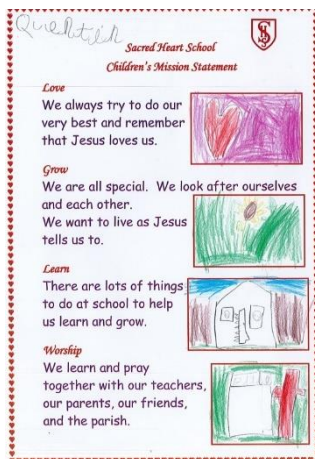 Sacred Heart School
Children's Mission Statement
Love
We always try to do our
very best and remember
that Jesus loves us.
Grow
We are all special. We look after ourselves
and each other.
We want to live as Jesus
tells us to.
Learn
There are lots of things
to do at school to help
us learn and grow.
Worship
We learn and pray
together with our teachers,
our parents, our friends,
and the parish.